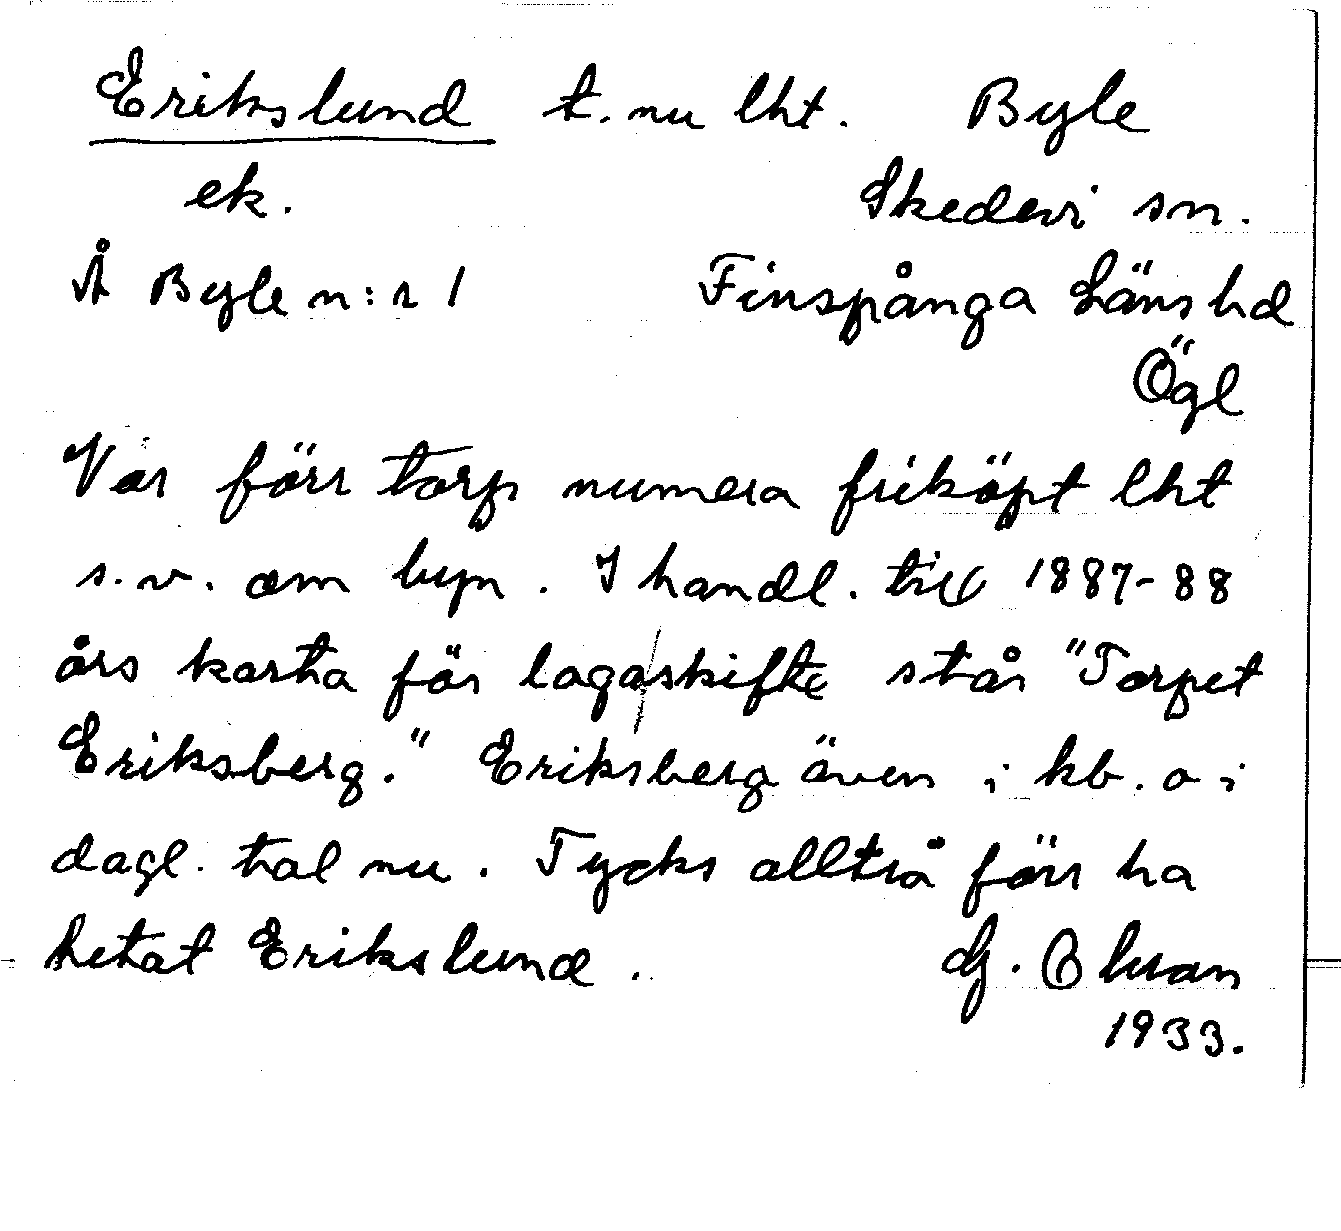 Erikslund t. nu lht. Byle
ek. Skedevi sn.
Å Byle n:r 1 Finspånga läns hd
Ögl
Var förr torp numera friköpt lht
s.v. om byn. I handl. till 1887-88
års karta för lagaskifte står "Torpet
Eriksberg." Eriksberg även i kb. o i
dagl. tal nu. Tycks alltså förr ha
hetat Erikslund.
1933.